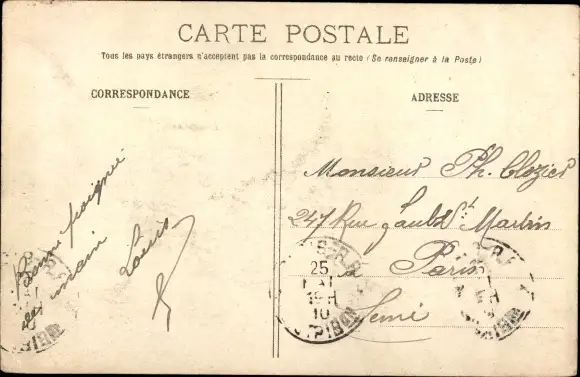 CARTE POSTALE
Tous les pays étrangers n'acceptent pas la correspondance au recto (Se renseigner à la Poste)
CORRESPONDANCE
ADRESSE
Bonne poignée
de main
Louis
Monsieur Ph. Clozier
247 Rue Faubg St Martin
Paris
Seine
25
10